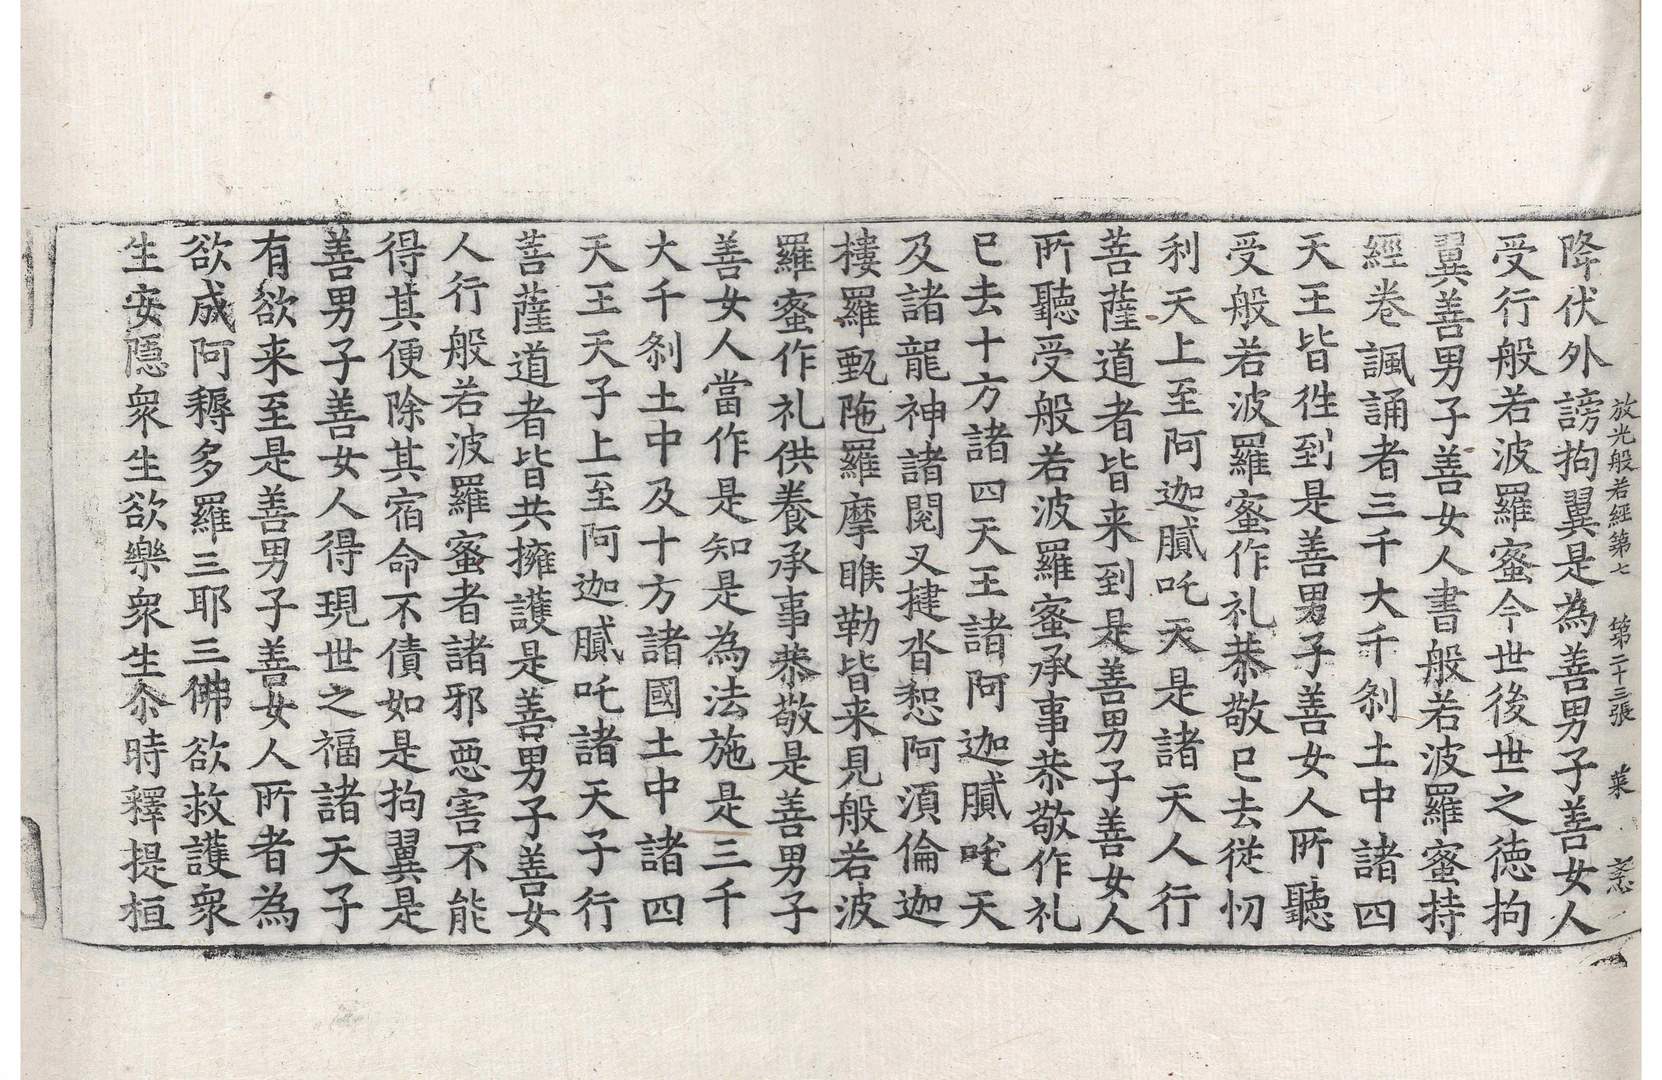 放光般若經第七　第二十三張　菜
降伏外謗拘翼是為善男子善女人
受行般若波羅蜜今世後世之徳拘
翼善男子善女人書般若波羅蜜持
經卷諷誦者三千大千剎土中諸四
天王皆徃到是善男子善女人所聽
受般若波羅蜜作礼恭敬已去從忉
利天上至阿迦膩吒天是諸天人行
菩薩道者皆来到是善男子善女人
所聽受般若波羅蜜承事恭敬作礼
已去十方諸四天王諸阿迦膩吒天
及諸龍神諸閱叉揵沓惒阿湏倫迦
樓羅甄陁羅摩睺勒皆来見般若波
羅蜜作礼供養承事恭敬是善男子
善女人當作是知是為法施是三千
大千剎土中及十方諸國土中諸四
天王天子上至阿迦膩吒諸天子行
菩薩道者皆共擁護是善男子善女
人行般若波羅蜜者諸邪惡害不能
得其便除其宿命不債如是拘翼是
善男子善女人得現世之福諸天子
有欲来至是善男子善女人所者為
欲成阿耨多羅三耶三佛欲救護衆
生安隱衆生欲樂衆生尒時釋提桓